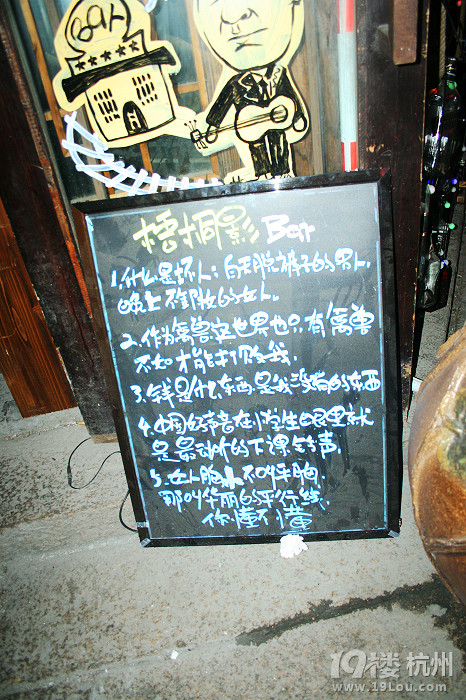 BAR
梧桐影 Bar
1.什么是坏人:白天脱裤子的男人,
晚上不卸妆的女人.
2.作为禽兽这世界也只有禽兽
不如才能对你全我.
3.钱是什么东西是我没有的东西
4.中国好声音在小学生眼里就
是最动听的下课铃声.
5.女人胸小不叫平胸
那叫华丽的平行线
你懂不懂
19楼 杭州
www.19lou.com